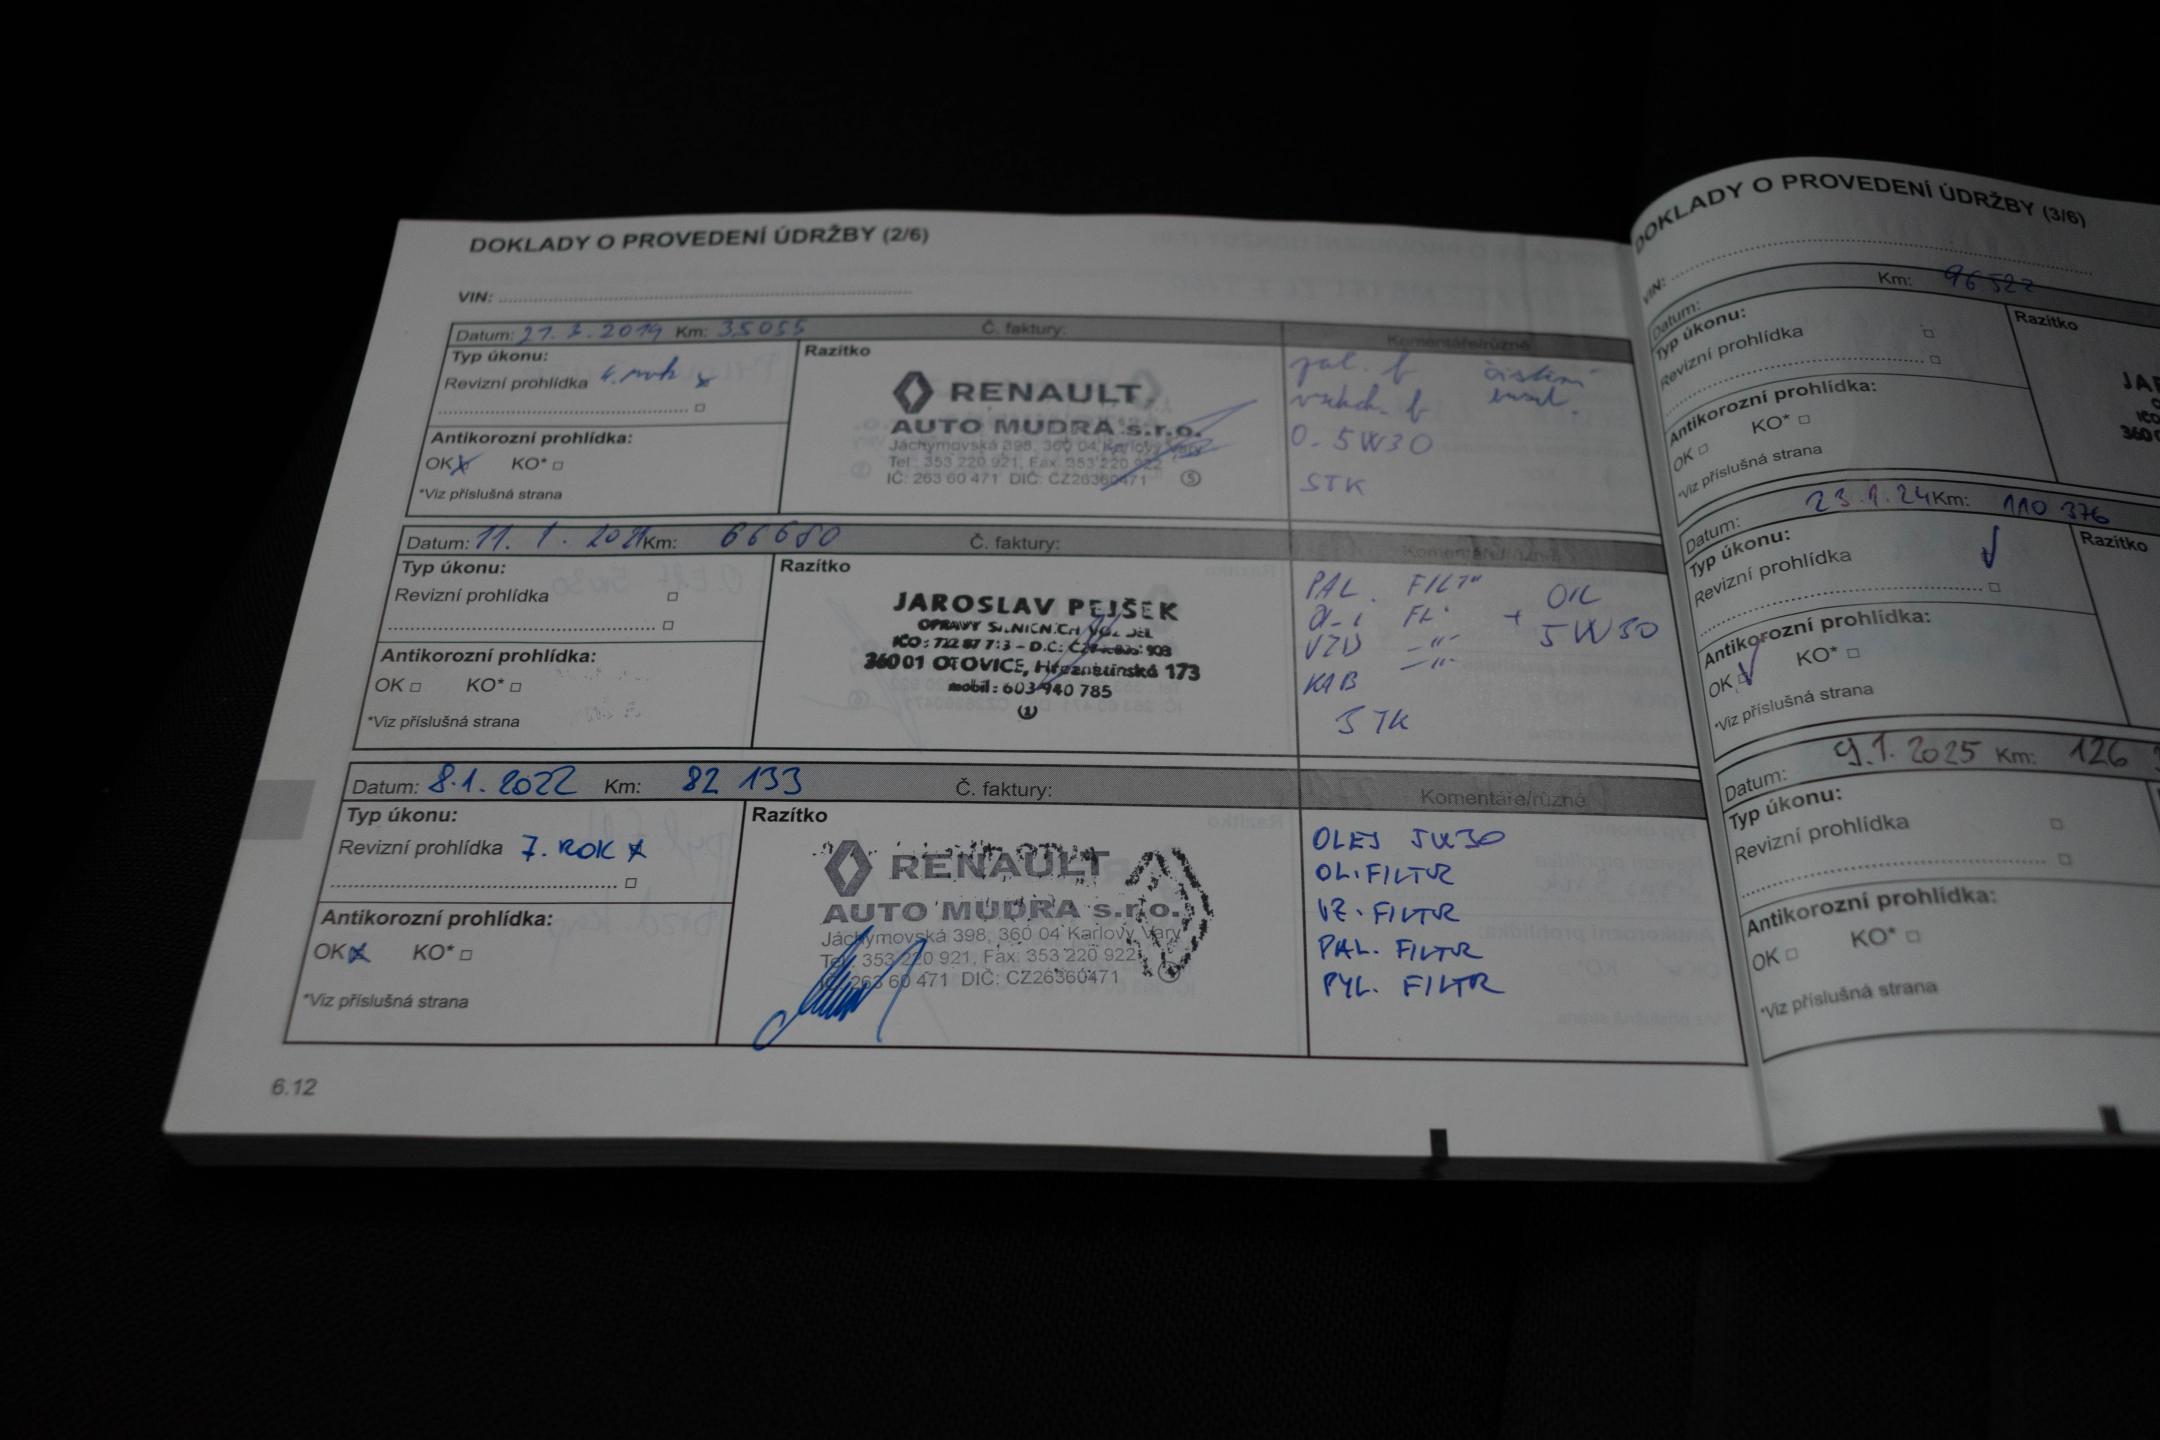 DOKLADY O PROVEDENÍ ÚDRŽBY (2/6)
VIN:
Datum: 3.2019 Km: 35055 Č. faktury: Komentáře/různé
Typ úkonu:
Revizní prohlídka 4. rok x
Antikorozní prohlídka:
OK x KO*
*Viz příslušná strana
Razítko
RENAULT
AUTO MUDRA s.r.o.
Jáchymovská 398, 360 04 Karlovy Vary
Tel.: 353 220 921, Fax: 353 220 922
IČ: 263 60 471 DIČ: CZ26360471 5
pal. f čištění
vzduch. f
O- 5W30
STK
Datum: 11. 1. 2021 Km: 66680 Č. faktury: Komentáře/různé
Typ úkonu:
Revizní prohlídka
Antikorozní prohlídka:
OK KO*
*Viz příslušná strana
Razítko
JAROSLAV PEJŠEK
OPRAVY SILNIČNÍCH VOZIDEL
36001 OTOVICE, 173
mobil: 603 940 785
1
PAL. FILTR
OIL
+ 5W30
VZD -"-
KAB -"-
STK
Datum: 8.1.2022 Km: 82 133 Č. faktury: Komentáře/různé
Typ úkonu:
Revizní prohlídka 7. ROK x
Antikorozní prohlídka:
OK x KO*
*Viz příslušná strana
Razítko
RENAULT
AUTO MUDRA s.r.o.
Jáchymovská 398, 360 04 Karlovy Vary
Tel.: 353 220 921, Fax: 353 220 922
IČ: 263 60 471 DIČ: CZ26360471
OLEJ 5W30
OL. FILTR
VZ. FILTR
PAL. FILTR
PYL. FILTR
6.12
DOKLADY O PROVEDENÍ ÚDRŽBY (3/6)
VIN:
Datum: Km: 96522
Typ úkonu:
Revizní prohlídka
Antikorozní prohlídka:
OK KO*
*Viz příslušná strana
Razítko
JAR
IČO
3600
Datum: 23.1.24 Km: 110 376
Typ úkonu:
Revizní prohlídka
Antikorozní prohlídka:
OK KO*
*Viz příslušná strana
Razítko
Datum: 9.1.2025 Km: 126
Typ úkonu:
Revizní prohlídka
Antikorozní prohlídka:
OK KO*
*Viz příslušná strana